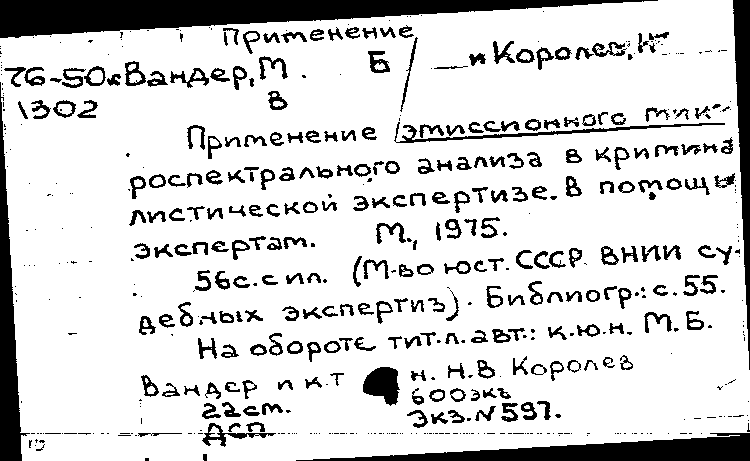 Применение
76-50к Вандер, М. Б и Королев, Н
1302 В
Применение эмиссионного мик-
роспектрального анализа в кримина
листической экспертизе. В помощь
экспертам. М., 1975.
56с. с ил. (М-во юст. СССР. ВНИИ су-
дебных экспертиз). Библиогр.: с. 55.
На обороте тит. л. авт.: к.ю.н. М.Б.
Вандер и к.т н. Н.В. Королев
22см. 600экз
ДСП Экз. N 597.